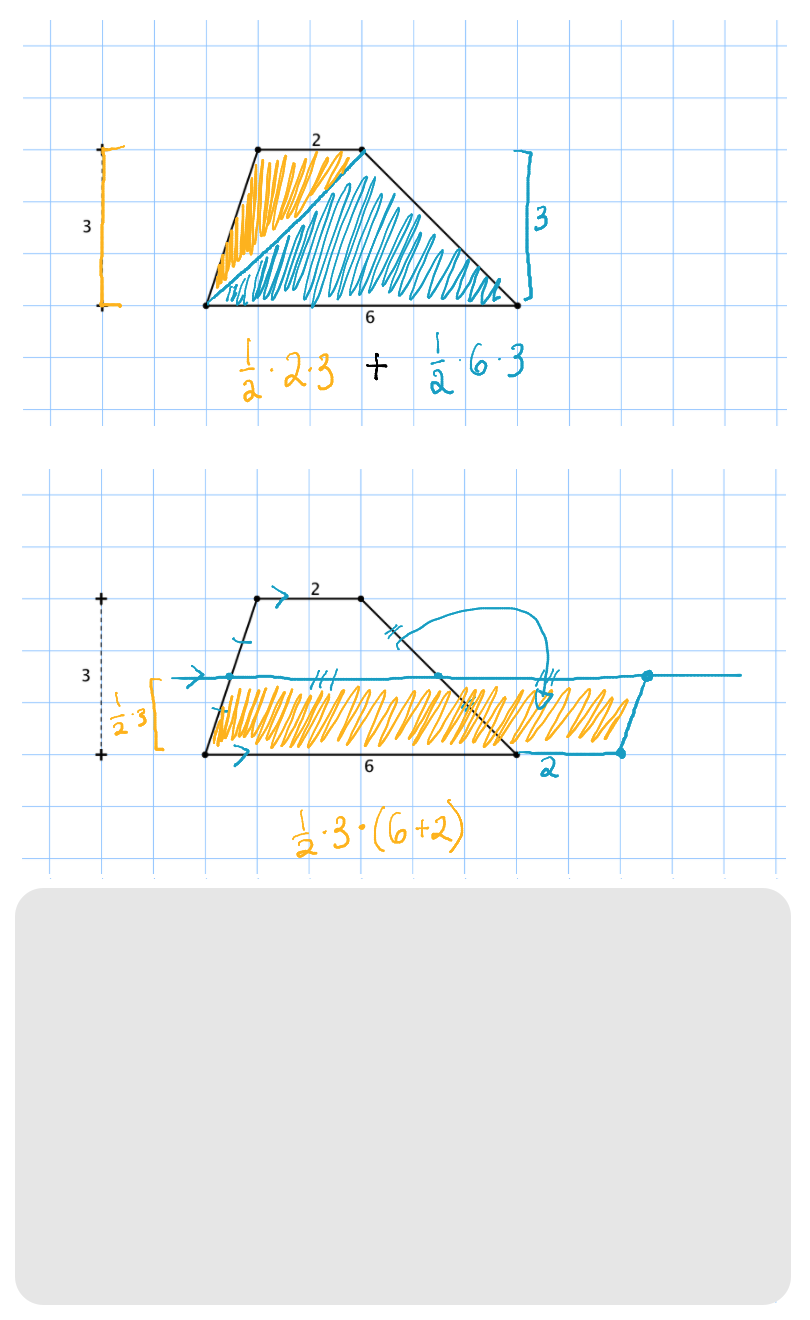 2
3
3
6
1/2 · 2 · 3 + 1/2 · 6 · 3
2
3
1/2 · 3
6
2
1/2 · 3 · (6+2)